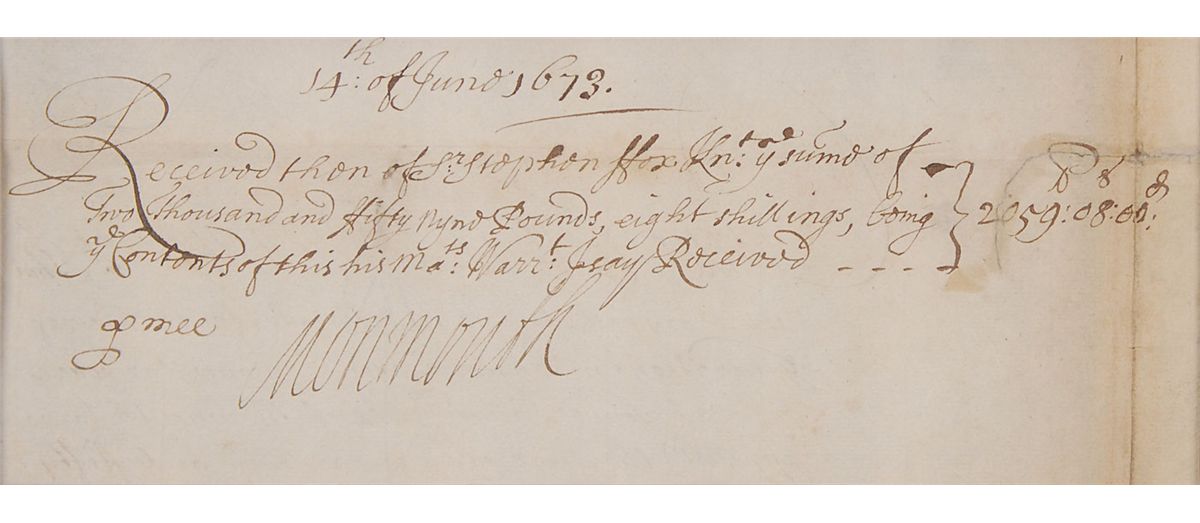 14th: of June 1673.
Received then of Sr. Stephen ffox Knt: ye sume of
Two Thousand and ffifty Nyne Pounds, eight shillings, being
ye Contents of this his Mats: Warrt: I say Received - - - -
li s d
2059:08:00:
p mee Monmouth